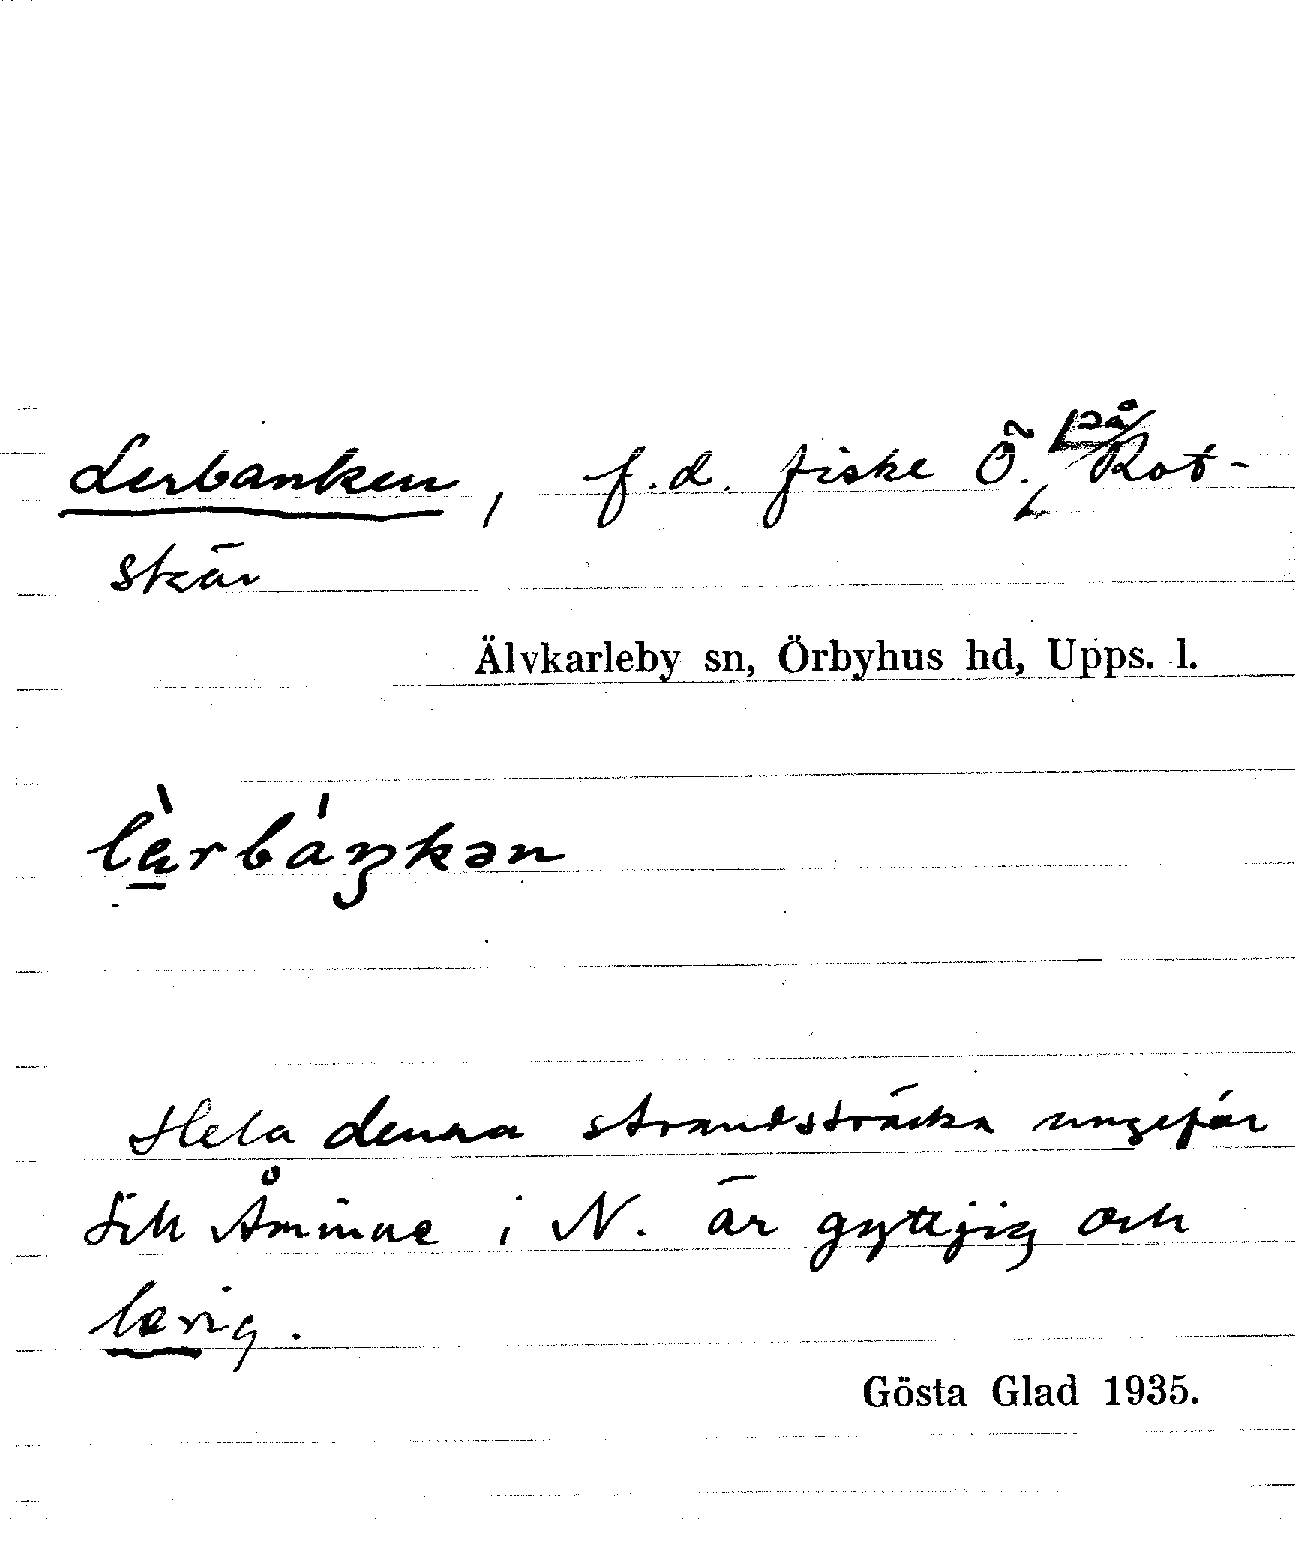 Lerbanken, f.d. fiske Ö. på Rot-
skär
Älvkarleby sn, Örbyhus hd, Upps. l.
lὰrbáŋkən
Hela denna strandsträcka ungefär
till Åminne i N. är gyttjig och
lerig.
Gösta Glad 1935.